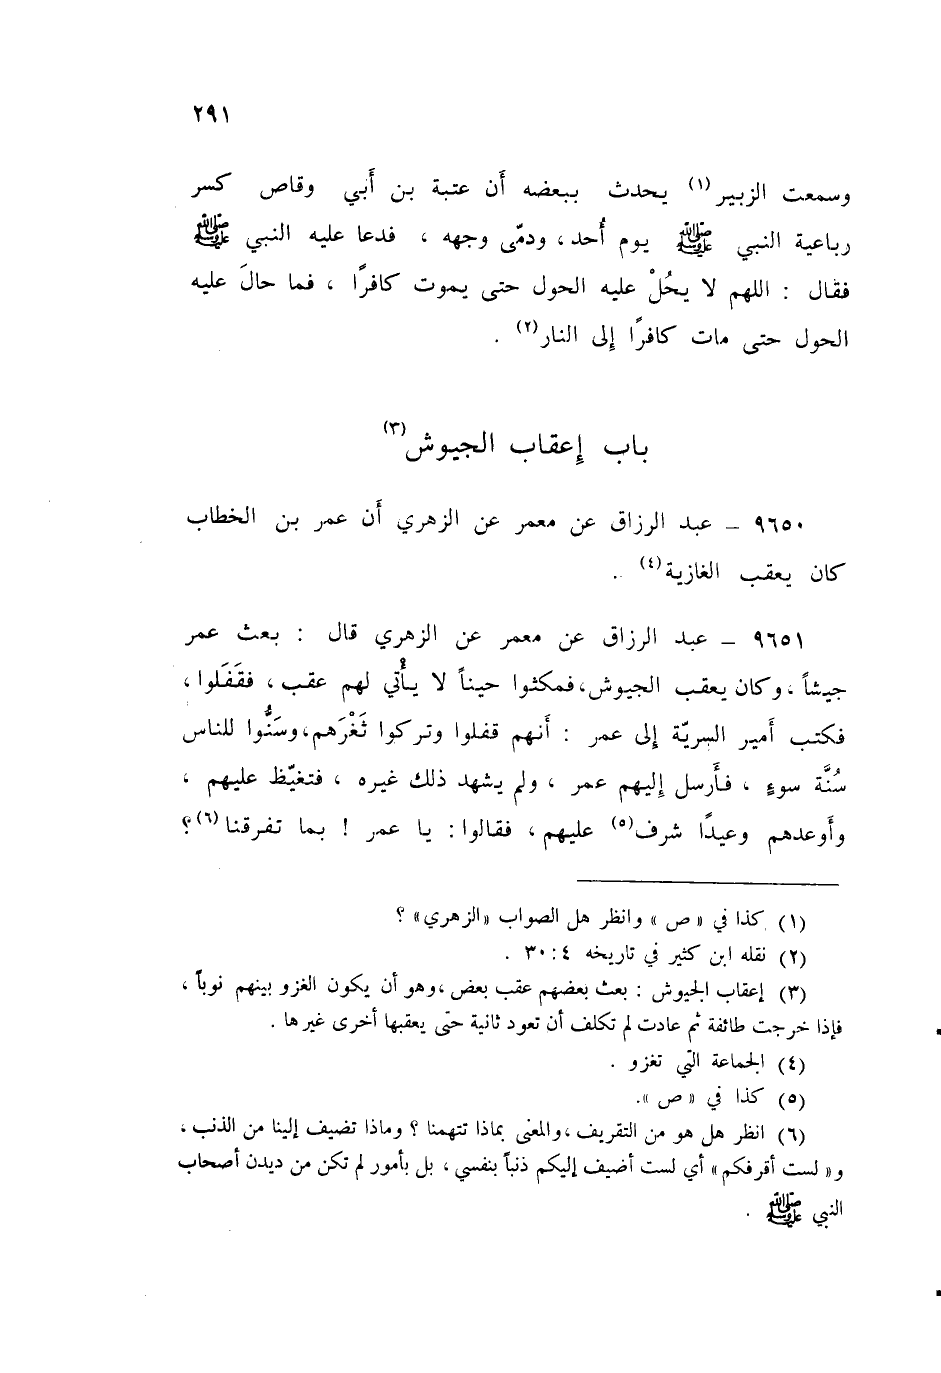 ٢٩١
وسمعت الزبير(١) يحدث ببعضه أَن عتبة بن أَبي وقاص كسر
رباعية النبي ﷺ يوم أُحد، ودمّى وجهه ، فدعا عليه النبي ﷺ
فقال : اللهم لا يحُلْ عليه الحول حتى يموت كافرًا ، فما حالَ عليه
الحول حتى مات كافرًا إِلى النار(٢) .
باب إِعقاب الجيوش(٣)
٩٦٥٠ – عبد الرزاق عن معمر عن الزهري أَن عمر بن الخطاب
كان يعقب الغازية(٤) .
٩٦٥١ – عبد الرزاق عن معمر عن الزهري قال : بعث عمر
جيشاً ، وكان يعقب الجيوش، فمكثوا حيناً لا يأْتي لهم عقب ، فقَفَلوا ،
فكتب أَمير السريّة إِلى عمر : أَنهم قفلوا وتركوا ثَغْرَهم، وسَنُّوا للناس
سُنَّة سوءٍ ، فأَرسل إِليهم عمر ، ولم يشهد ذلك غيره ، فتغيّظ عليهم ،
وأَوعدهم وعيدًا شرف(٥) عليهم ، فقالوا : يا عمر ! بما تفرقنا(٦)؟
(١) كذا في « ص » وانظر هل الصواب «الزهري» ؟
(٢) نقله ابن كثير في تاريخه ٤ : ٣٠ .
(٣) إعقاب الجيوش : بعث بعضهم عقب بعض ، وهو أن يكون الغزو بينهم نوباً ،
فإذا خرجت طائفة ثم عادت لم تكلف أن تعود ثانية حتى يعقبها أخرى غيرها .
(٤) الجماعة التي تغزو .
(٥) كذا في « ص ».
(٦) انظر هل هو من التقريف ، والمعنى بماذا تتهمنا ؟ وماذا تضيف إلينا من الذنب ،
و« لست أقرفكم» أي لست أضيف إليكم ذنباً بنفسي ، بل بأمور لم تكن من ديدن أصحاب
النبي ﷺ .